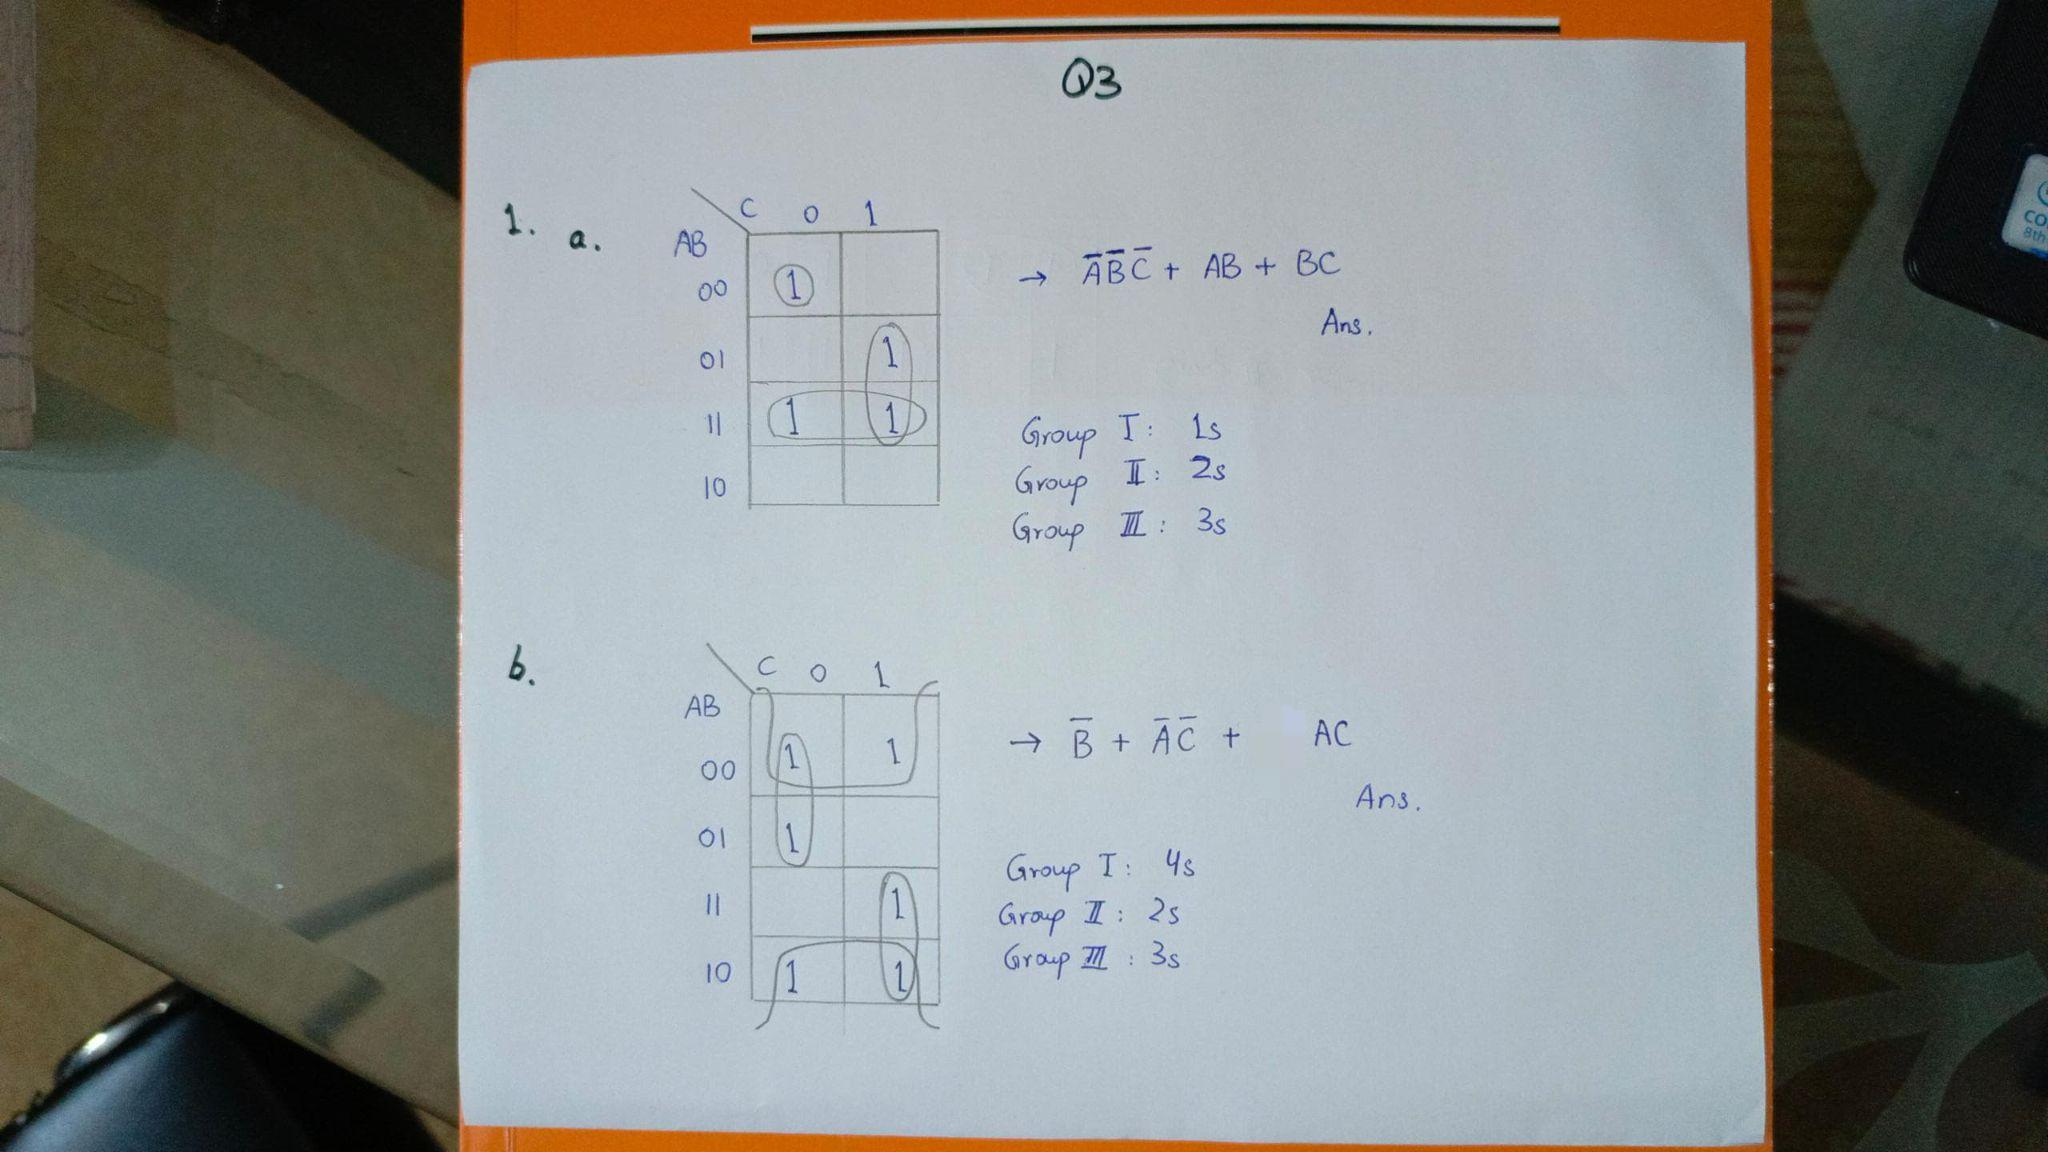 Q3
1. a.
C 0 1
AB
00 1
01 1
11 1 1
10
→ A̅ B̅ C̅ + AB + BC
Ans.
Group I: 1s
Group II: 2s
Group III: 3s
b.
C 0 1
AB
00 1 1
01 1
11 1
10 1 1
→ B̅ + A̅ C̅ + AC
Ans.
Group I: 4s
Group II: 2s
Group III: 3s
CO
8th